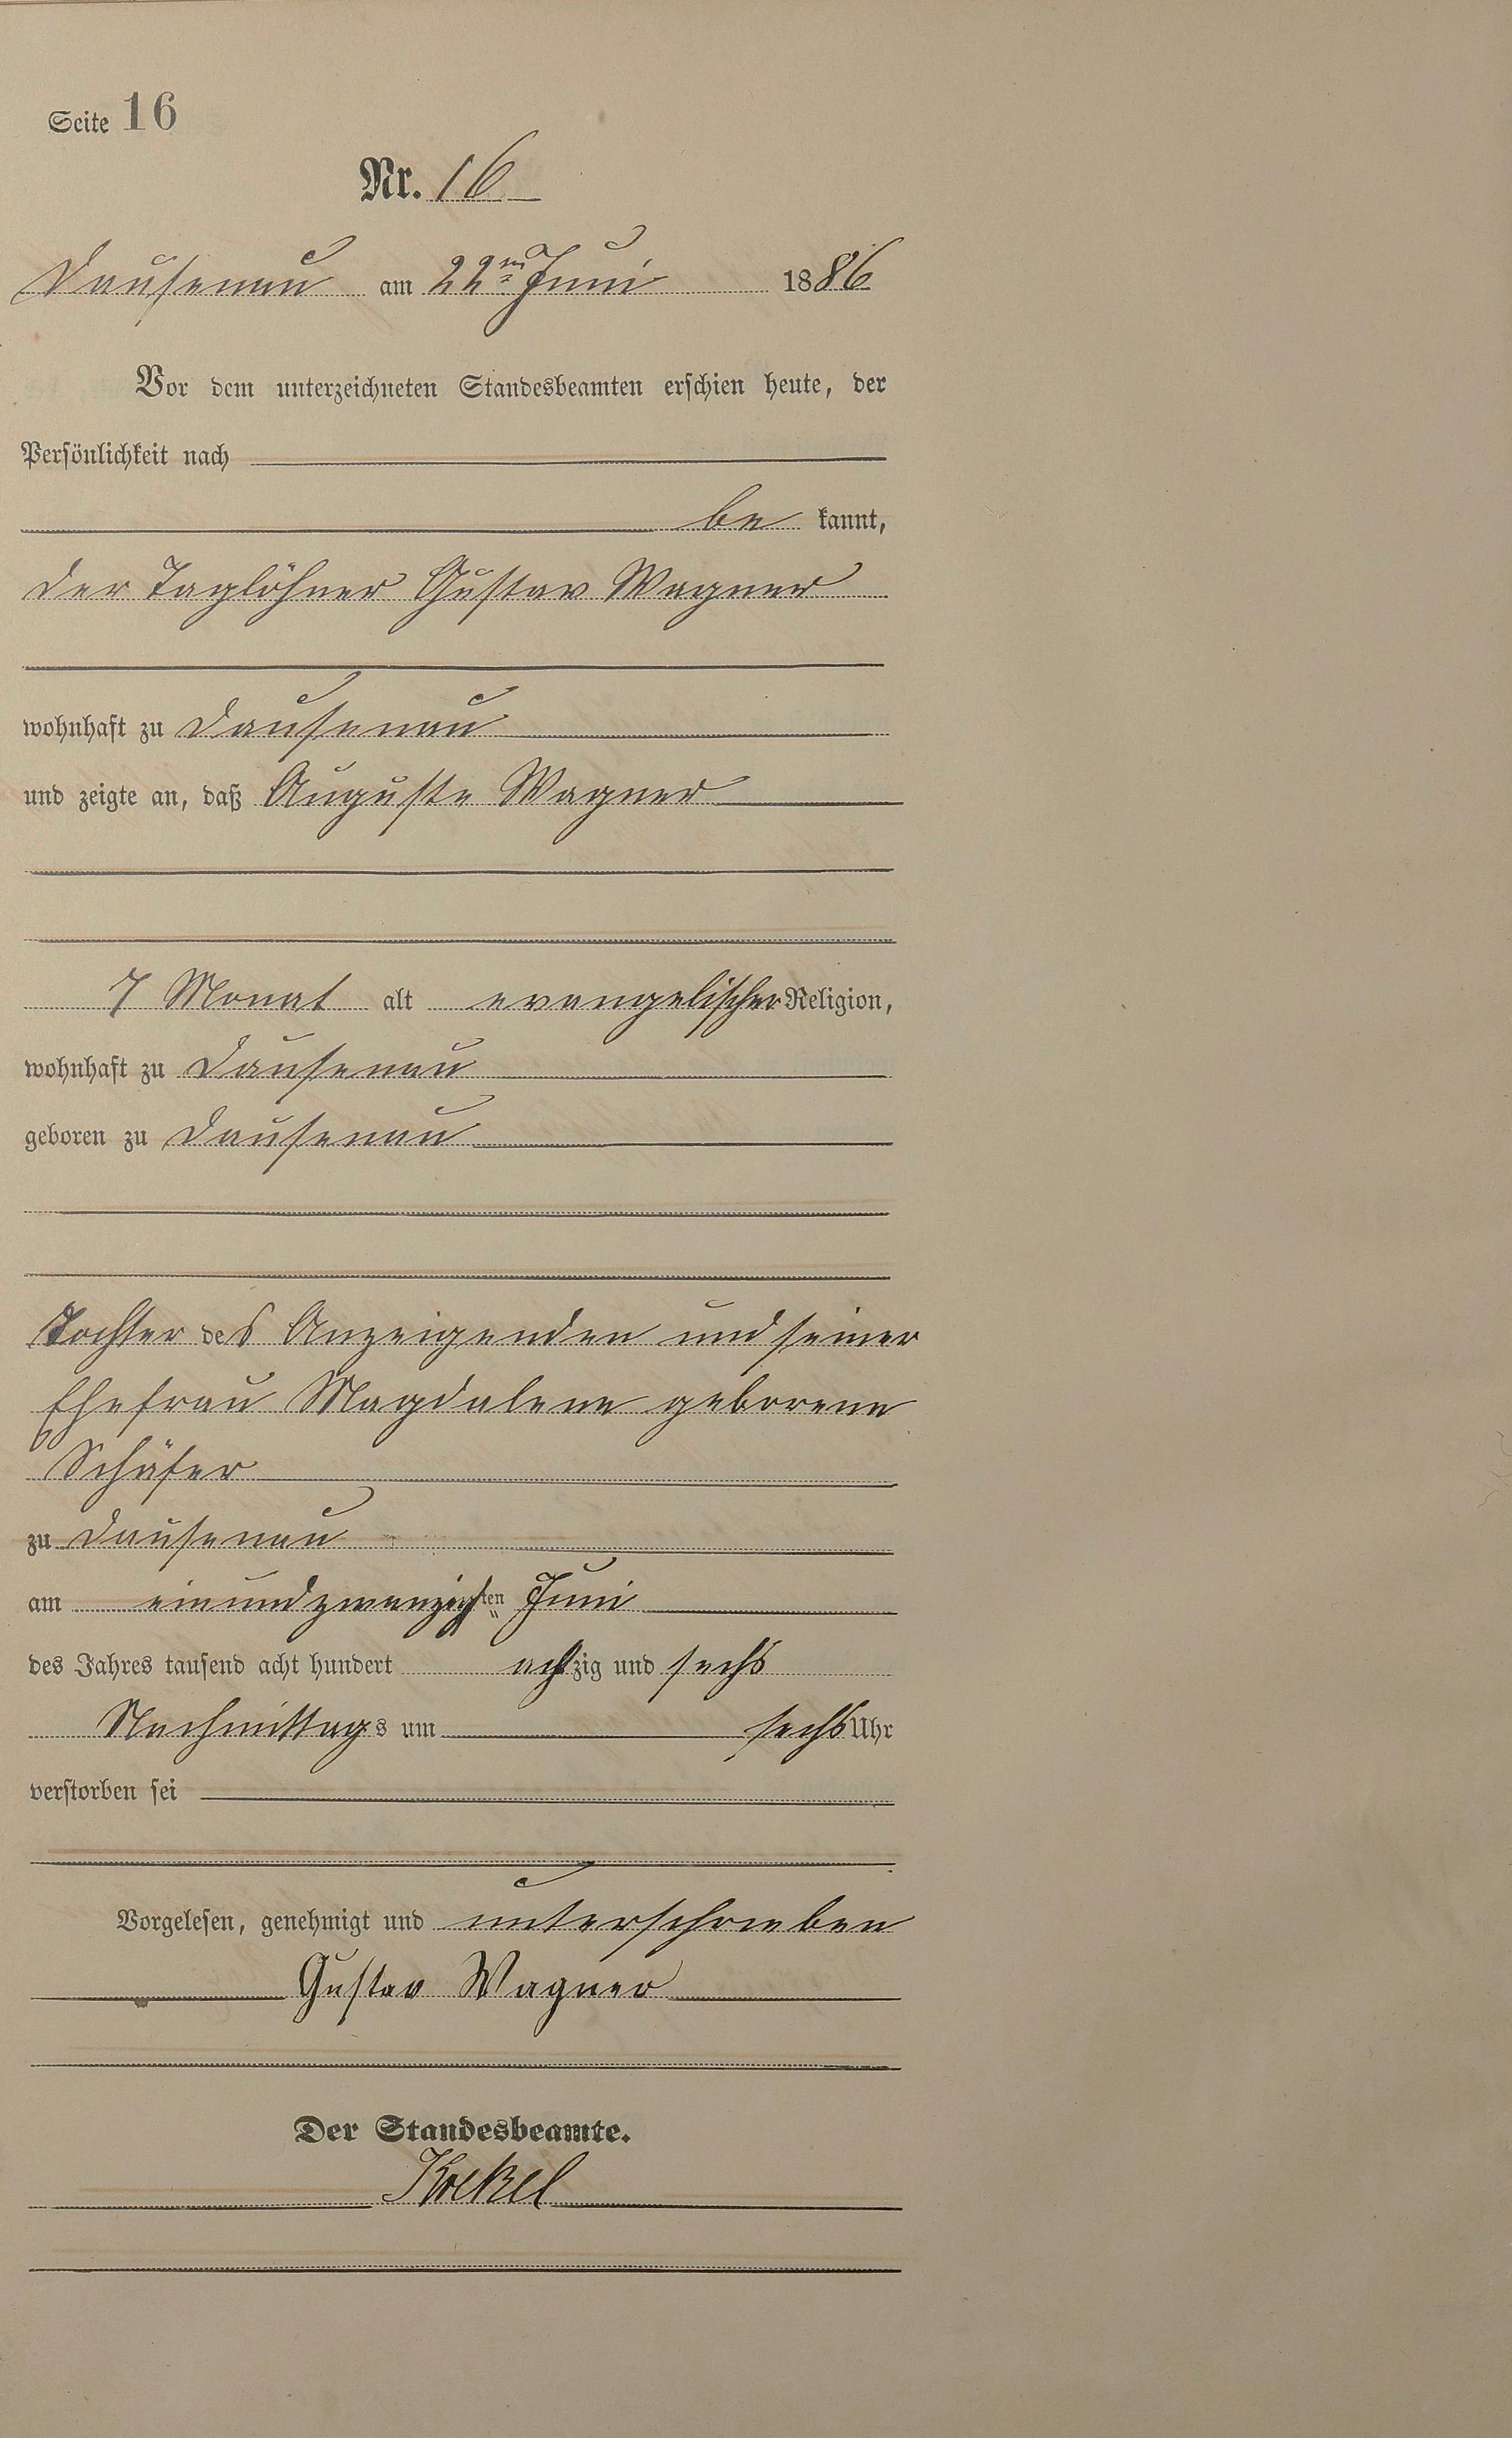 Seite 16
Nr. 16
Dausenau am 22ten Juni 1886
Vor dem unterzeichneten Standesbeamten erschien heute, der
Persönlichkeit nach
be kannt,
der Taglöhner Gustav Wagner
wohnhaft zu Dausenau
und zeigte an, daß Auguste Wagner
7 Monat alt evangelischer Religion,
wohnhaft zu Dausenau
geboren zu Dausenau
Tochter des Anzeigenden und seiner
Ehefrau Magdalene geborene
Schäfer
zu Dausenau
am einundzwanzigsten Juni
des Jahres tausend acht hundert achtzig und sechs
Nachmittags um sechs Uhr
verstorben sei
Vorgelesen, genehmigt und unterschrieben
Gustav Wagner
Der Standesbeamte.